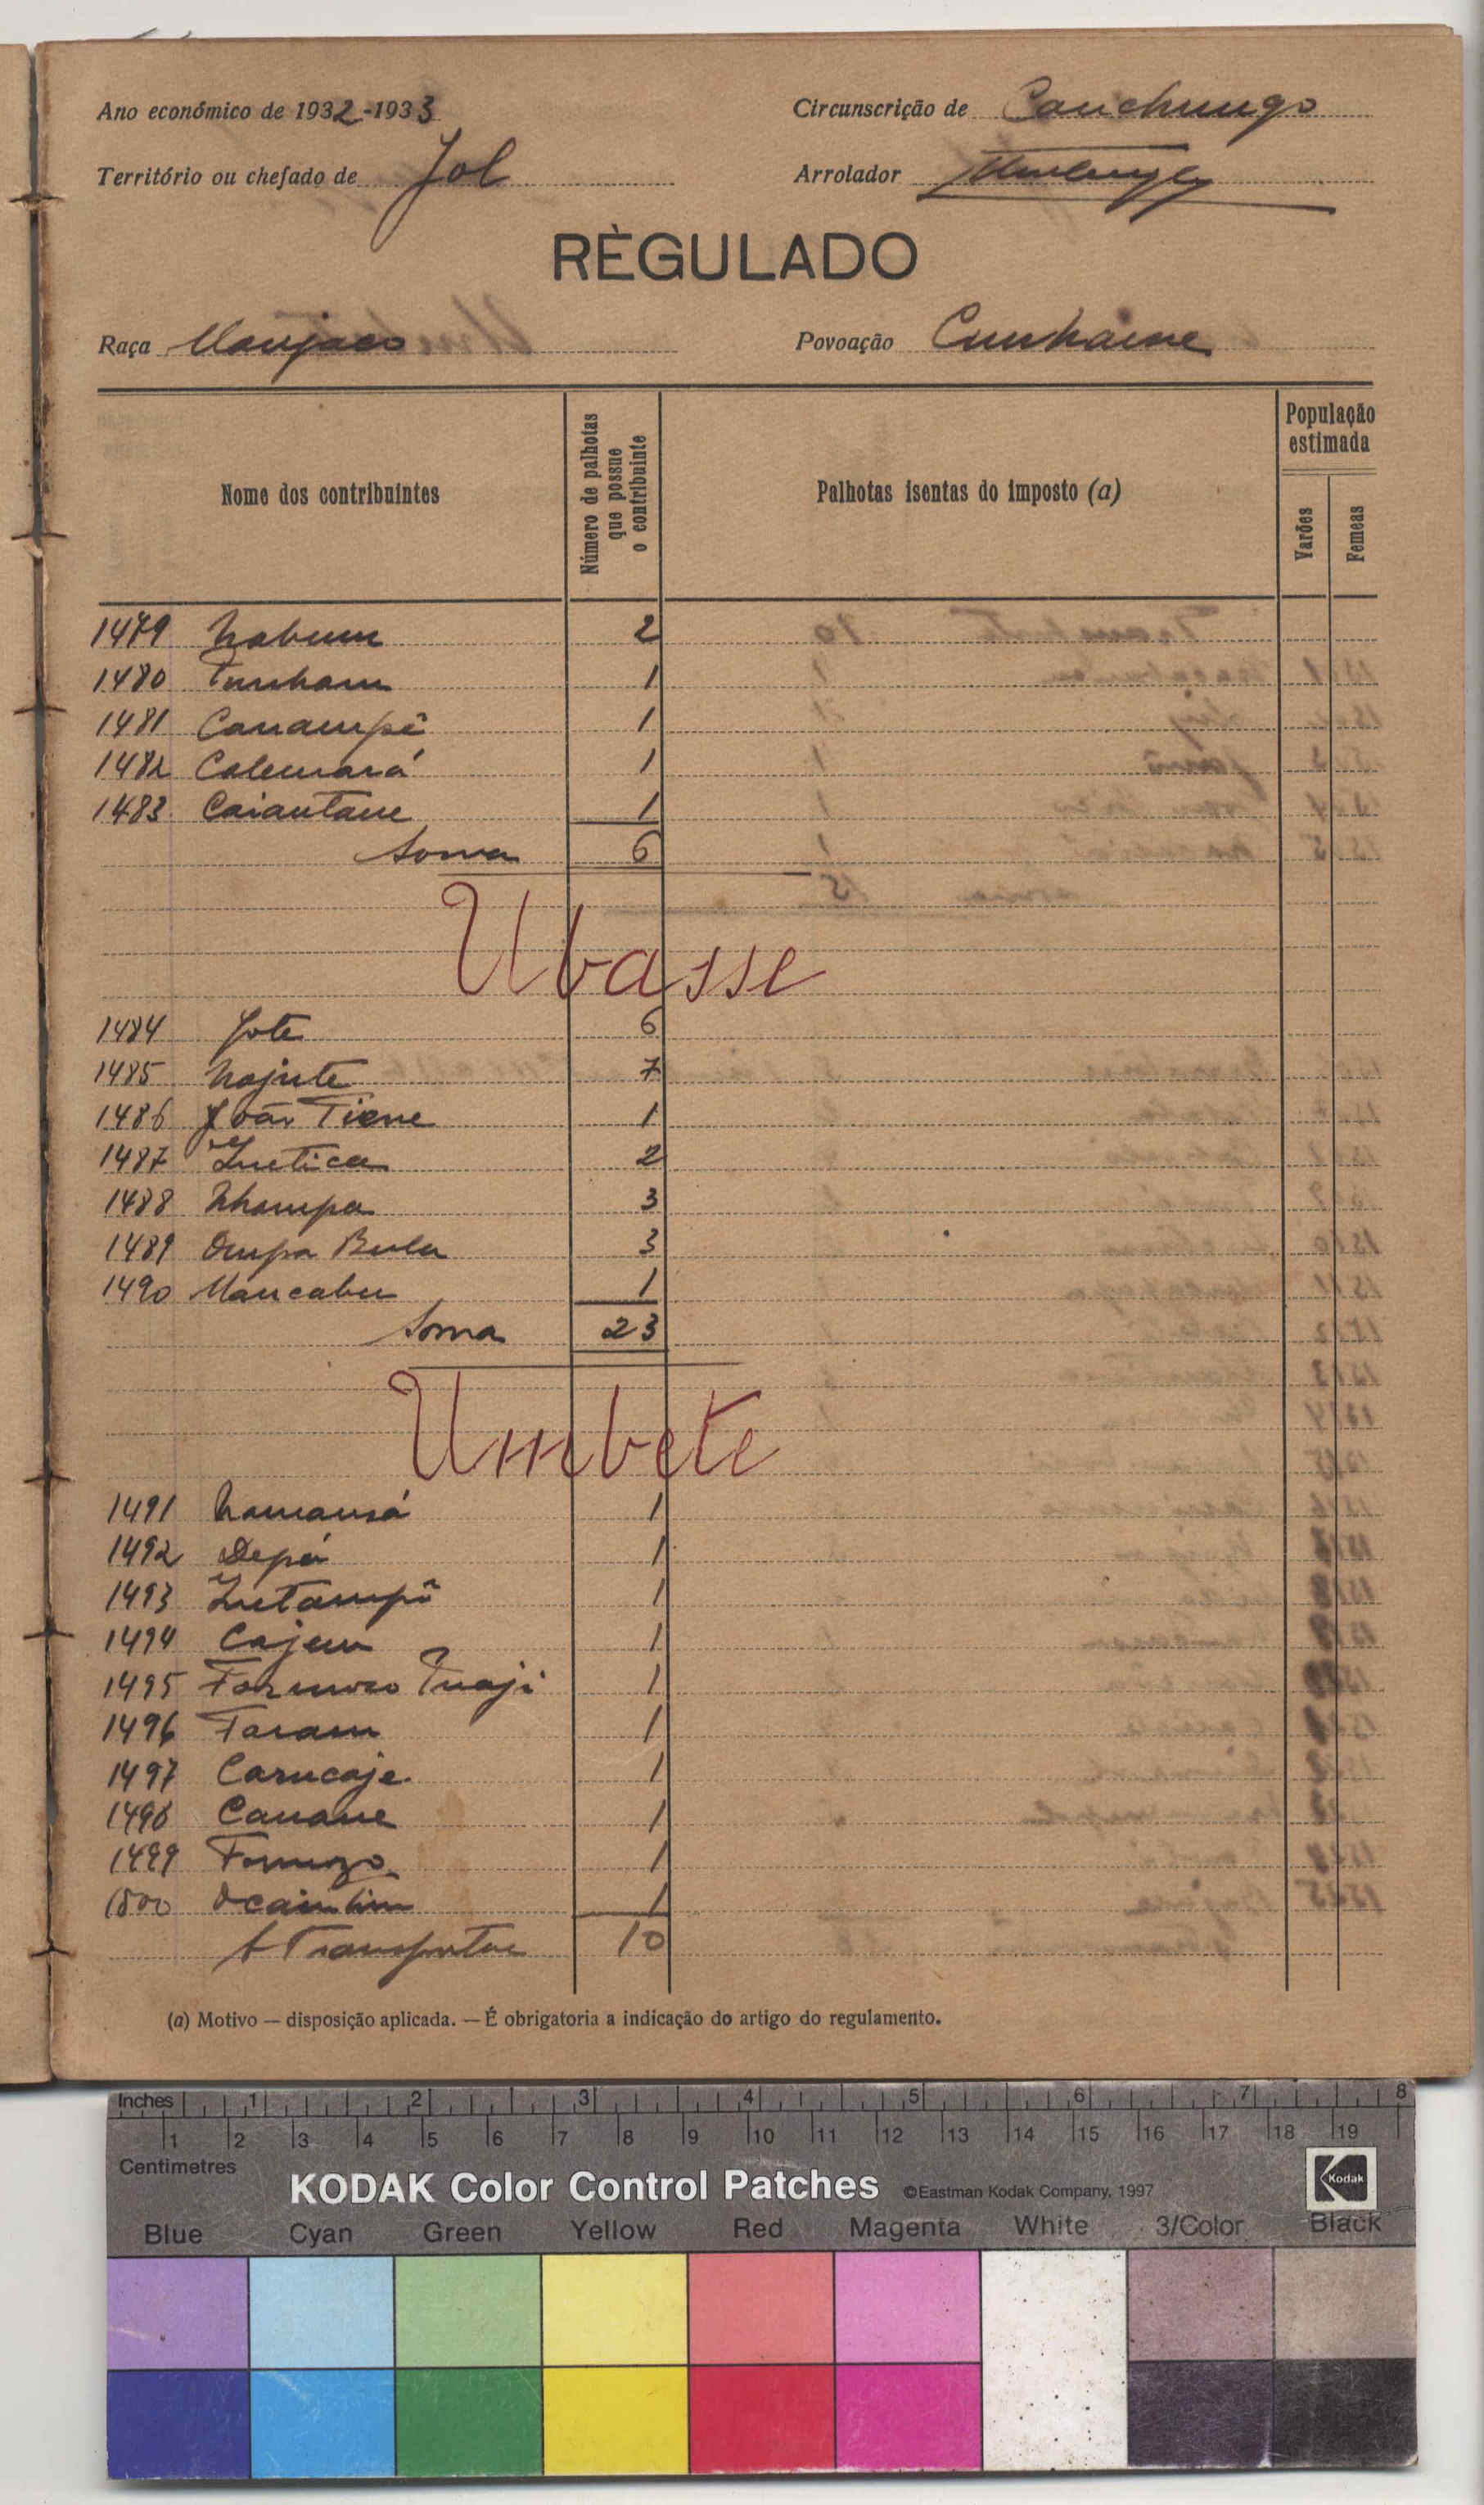 Ano económico de 1932-1933
Circunscrição de Canchungo
Território ou chefado de Jol
Arrolador
RÈGULADO
Raça Manjaco
Povoação Cunhaime
Nome dos contribuintes
Número de palhotas que possue o contribuinte
Palhotas isentas do imposto (a)
População estimada
Varões
Femeas
1479 Nabum 2
1480 Tunham 1
1481 Canampê 1
1482 Calemará 1
1483 Caiantane 1
Soma 6
Ubasse
1484 Jote 6
1485 Najute 7
1486 João Tiene 1
1487 Inetica 2
1488 Nhampa 3
1489 Ompa Bula 3
1490 Mancabu 1
Soma 23
Umbete
1491 Namansá 1
1492 Depá 1
1493 Intampô 1
1494 Cajem 1
1495 Formoso Tuaji 1
1496 Taram 1
1497 Carucaje 1
1498 Canane 1
1499 Formozo 1
1500 Ocaintim 1
A Transportar 10
(a) Motivo — disposição aplicada. — É obrigatoria a indicação do artigo do regulamento.
Inches 1 2 3 4 5 6 7 8
1 2 3 4 5 6 7 8 9 10 11 12 13 14 15 16 17 18 19
Centimetres
KODAK Color Control Patches ©Eastman Kodak Company, 1997 Kodak
Blue Cyan Green Yellow Red Magenta White 3/Color Black